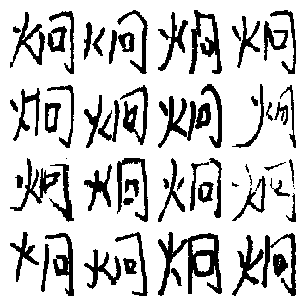 炯炯炯炯
炯炯炯炯
炯炯炯炯
炯炯炯炯